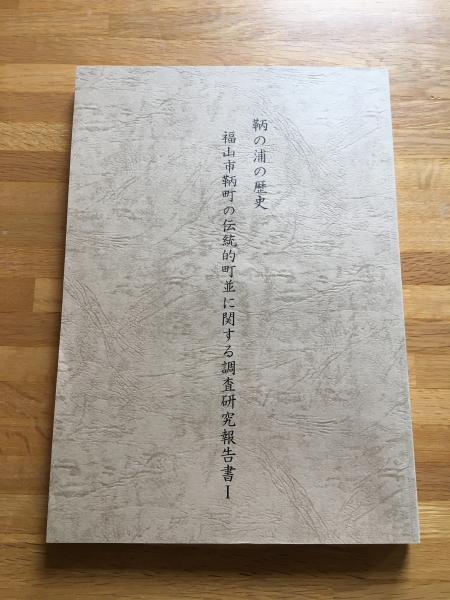 鞆の浦の歴史
福山市鞆町の伝統的町並に関する調査研究報告書Ⅰ